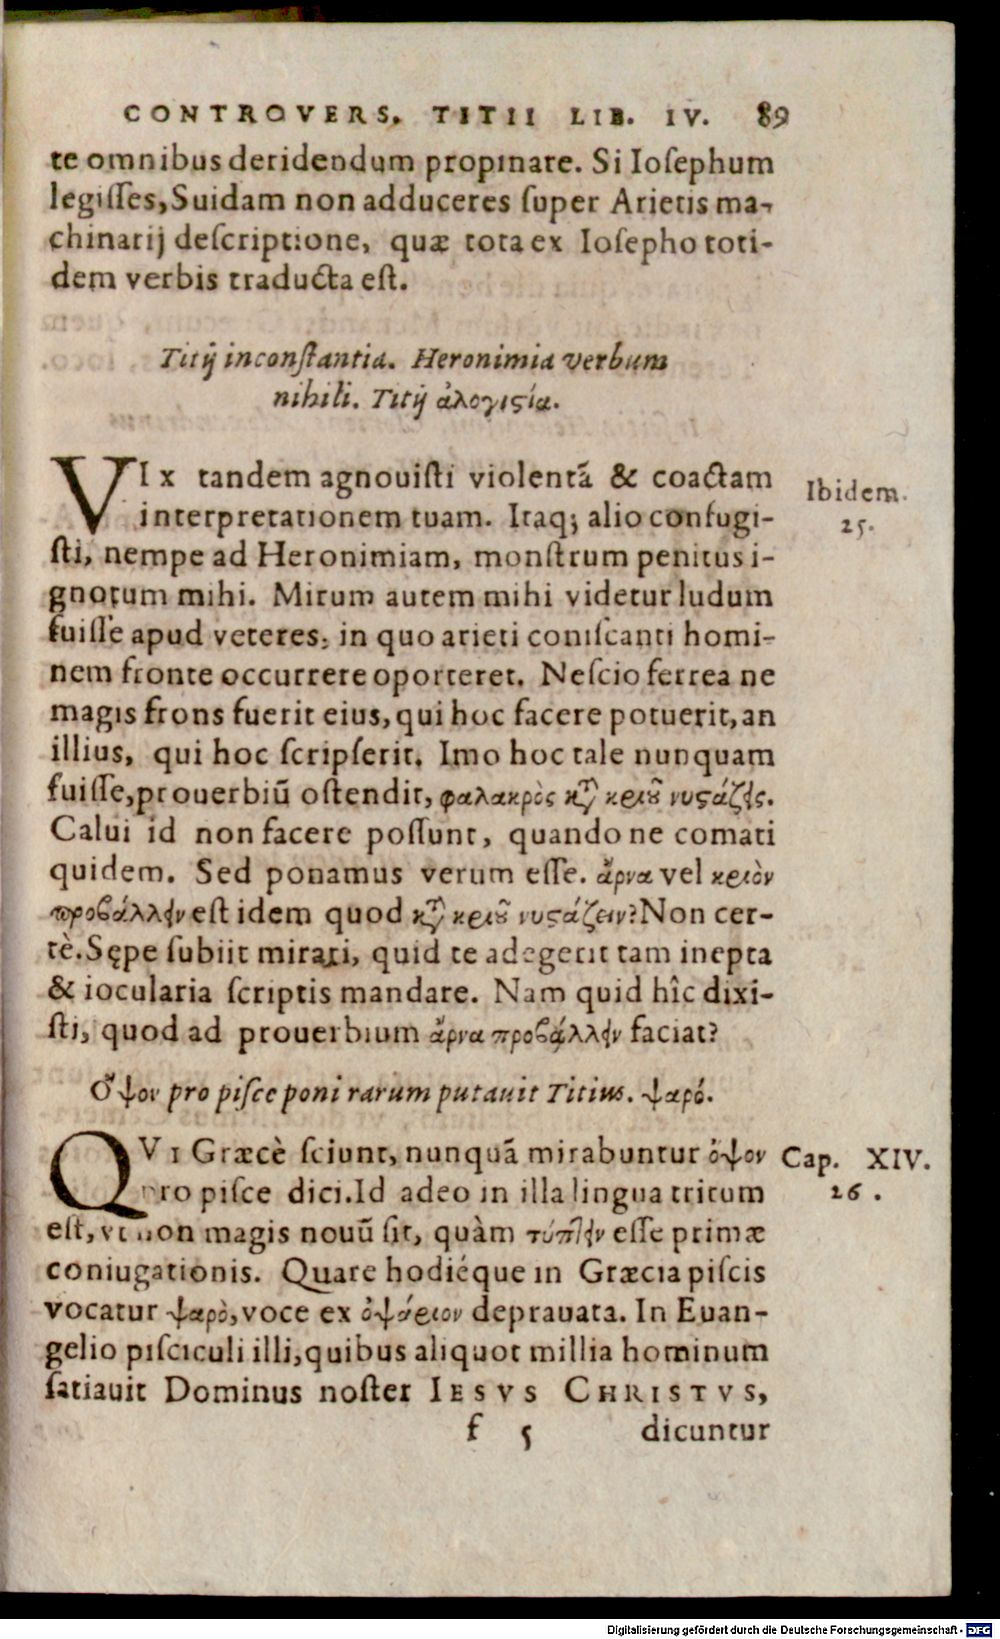 CONTROVERS. TITII LIB. IV. 89
te omnibus deridendum propinare. Si Iosephum
legisses, Suidam non adduceres super Arietis ma-
chinarij descriptione, quæ tota ex Iosepho toti-
dem verbis traducta est.
Titij inconstantia. Heronimia verbum
nihili. Titij ἀλογιςία.
VIx tandem agnouisti violentã & coactam
interpretationem tuam. Itaq; alio confugi-
sti, nempe ad Heronimiam, monstrum penitus i-
gnotum mihi. Mirum autem mihi videtur ludum
fuisse apud veteres, in quo arieti coniscanti homi-
nem fronte occurrere oporteret. Nescio ferrea ne
magis frons fuerit eius, qui hoc facere potuerit, an
illius, qui hoc scripserit. Imo hoc tale nunquam
fuisse, prouerbiũ ostendit, φαλακρὸς κτ̃ κριοῦ νυςάζεις.
Calui id non facere possunt, quando ne comati
quidem. Sed ponamus verum esse. ἄρνα vel κριὸν
προβάλλειν est idem quod κτ̃ κριοῦ νυςάζειν? Non cer-
tè. Sępe subiit mirari, quid te adegerit tam inepta
& iocularia scriptis mandare. Nam quid hîc dixi-
sti, quod ad prouerbium ἄρνα προβάλλειν faciat?
Ὄψον pro pisce poni rarum putauit Titius. ψαρό.
QVI Græcè sciunt, nunquã mirabuntur ὄψον
pro pisce dici. Id adeo in illa lingua tritum
est, vt non magis nouũ sit, quàm τύπτειν esse primæ
coniugationis. Quare hodiéque in Græcia piscis
vocatur ψαρὸ, voce ex ὀψάριον deprauata. In Euan-
gelio pisciculi illi, quibus aliquot millia hominum
satiauit Dominus noster IESVS CHRISTVS,
f 5 dicuntur
Ibidem.
25.
Cap. XIV.
26.
Digitalisierung gefördert durch die Deutsche Forschungsgemeinschaft - DFG